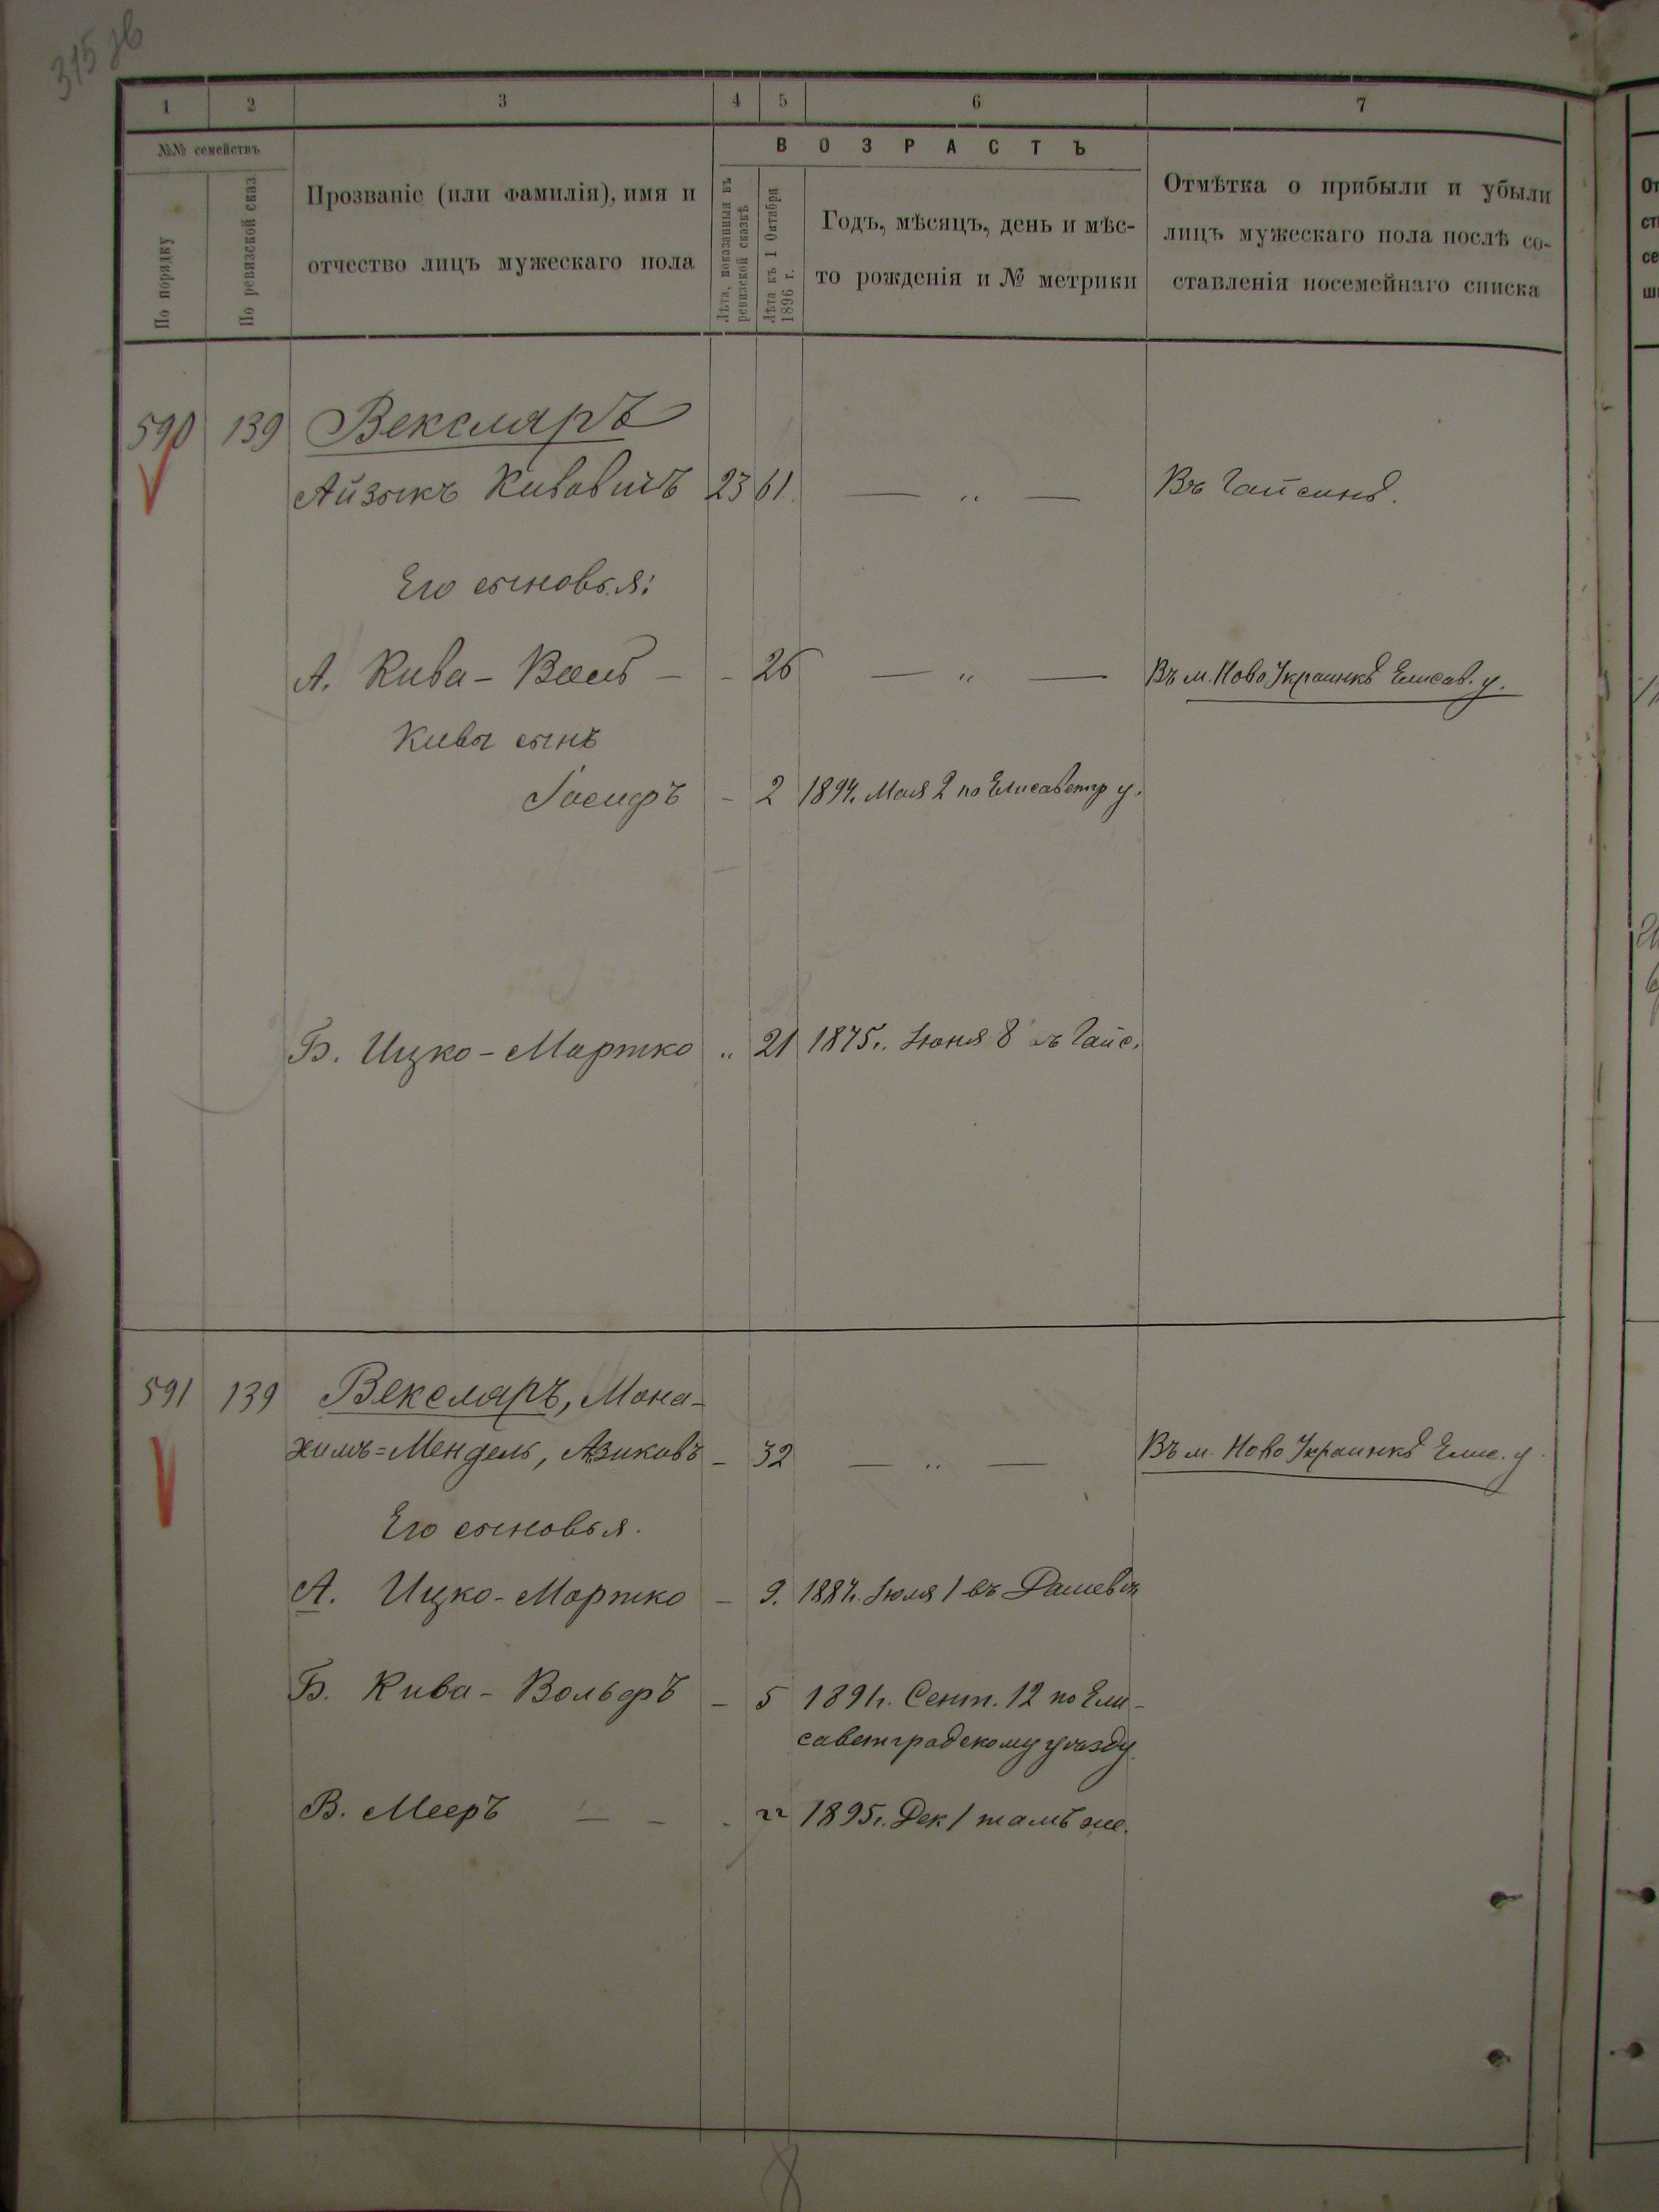 315 зв
1 2 3 4 5 6 7
№№ семействъ
По порядку
По ревизской сказ
Прозваніе (или фамилія), имя и
отчество лицъ мужескаго пола
ВОЗРАСТЪ
Лѣта, показанныя въ
ревизской сказкѣ
Лѣта къ 1 Октября
1896 г.
Годъ, мѣсяцъ, день и мѣс-
то рожденія и № метрики
Отмѣтка о прибыли и убыли
лицъ мужескаго пола послѣ со-
ставленія посемейнаго списка
590 139 Вексляръ
Айзыкъ Кивовичъ 23 61 — „ — Въ Гайсинѣ.
Его сыновья:
А. Кива - — - 26 — „ — Въ м. Ново Украинкѣ Елисав. у.
Кивы сынъ
Іосифъ - 2 1894г. Мая 2 по Елисаветгр у.
Б. Ицко - Мортко „ 21 1875г. Іюня 8 въ Гайс.
591 139 Вексляръ, Мона-
химъ=Мендель, Азиковъ - 32 — „ — Въ м. Ново Украинкѣ Елис. у.
Его сыновья.
А. Ицко - Мортко - 9. 1887г. Іюля 1 въ Дашевѣ
Б. Кива - Вольфъ - 5 1891г. Сент. 12 по Ели-
саветградскому уѣзду
В. Мееръ — - . „ 1895г. Дек 1 тамъ же.